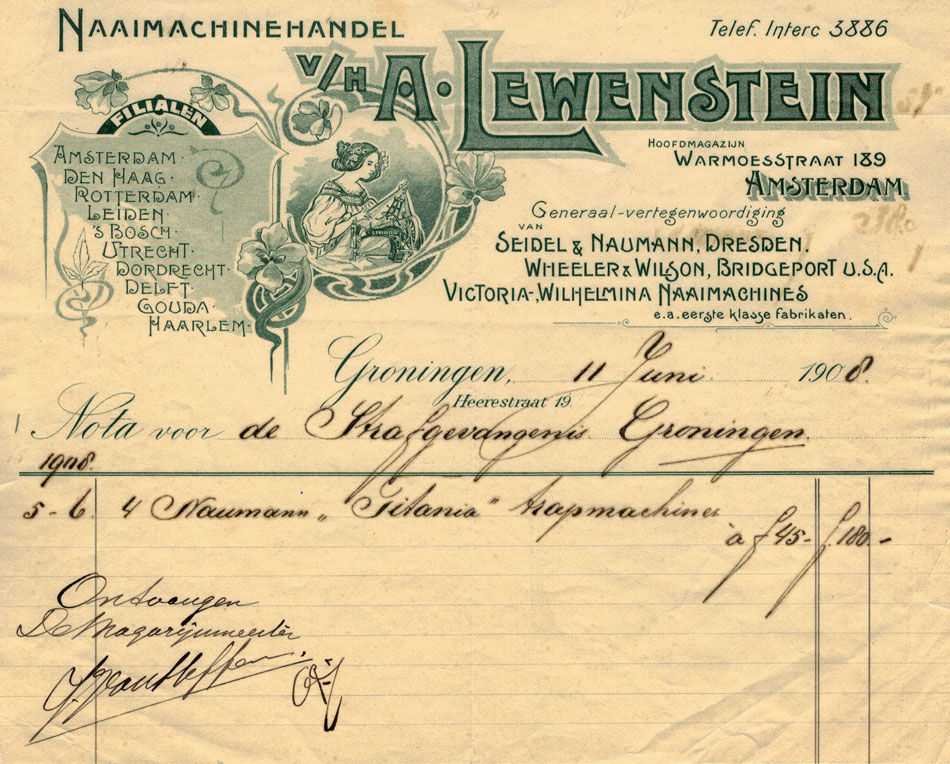 NAAIMACHINEHANDEL
Telef. Interc 3886
V/H A. LEWENSTEIN
FILIALEN
AMSTERDAM.
DEN HAAG.
ROTTERDAM.
LEIDEN.
'S BOSCH.
UTRECHT.
DORDRECHT.
DELFT.
GOUDA.
HAARLEM.
HOOFDMAGAZIJN
WARMOESSTRAAT 189
AMSTERDAM
Generaal-vertegenwoordiging
VAN
SEIDEL & NAUMANN, DRESDEN.
WHEELER & WILSON, BRIDGEPORT U.S.A.
VICTORIA-, WILHELMINA NAAIMACHINES
e.a. eerste klasse fabrikaten.
Groningen, 11 Juni 1908.
Heerestraat 19.
Nota voor de Strafgevangenis Groningen.
1908.
5-6. 4 Naumann „Titania" trapmachines
à f 45- f. 180.-
Ontvangen
De Magazijnmeester